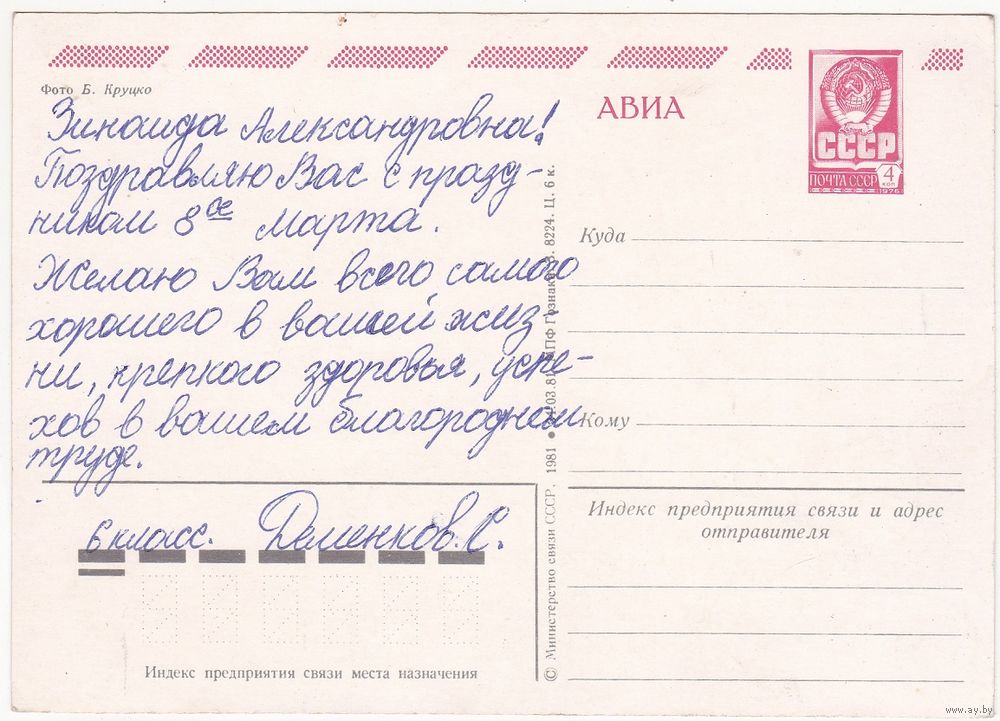 Фото Б. Круцко
Зинаида Александровна!
Поздравляю Вас с празд-
ником 8ое Марта.
Желаю Вам всего самого
хорошего в вашей жиз
ни, крепкого здоровья, успе-
хов в вашем благородном
труде.
6 класс. Деменков.С.
Индекс предприятия связи места назначения
© Министерство связи СССР. 1981 ●
.03.81
ППФ Гознака. З. 8224. Ц. 6 к.
АВИА
СССР
ПОЧТА СССР
4
коп
1976
Куда
Кому
Индекс предприятия связи и адрес
отправителя
www.ay.by